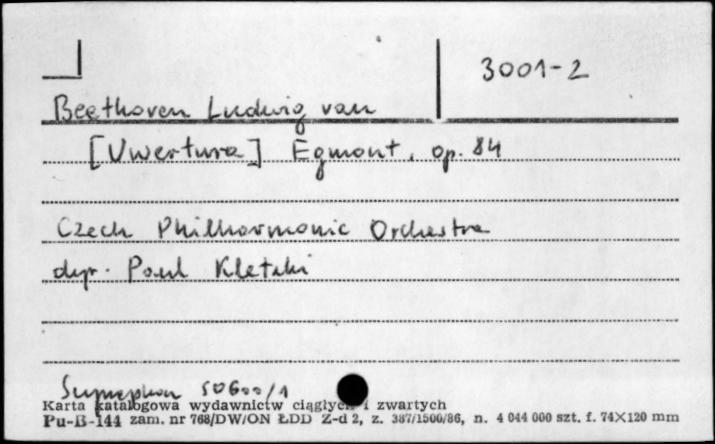 3001-2
Beethoven Ludwig van
[Uwertura] Egmont, op. 84
Czech Philharmonic Orchestra
dyr. Paul Kletzki
Supraphon 50600/1
Karta katalogowa wydawnictw ciągłych i zwartych
Pu-B-144 zam. nr 768/DW/ON ŁDD Z-d 2, z. 387/1500/86, n. 4 044 000 szt. f. 74×120 mm